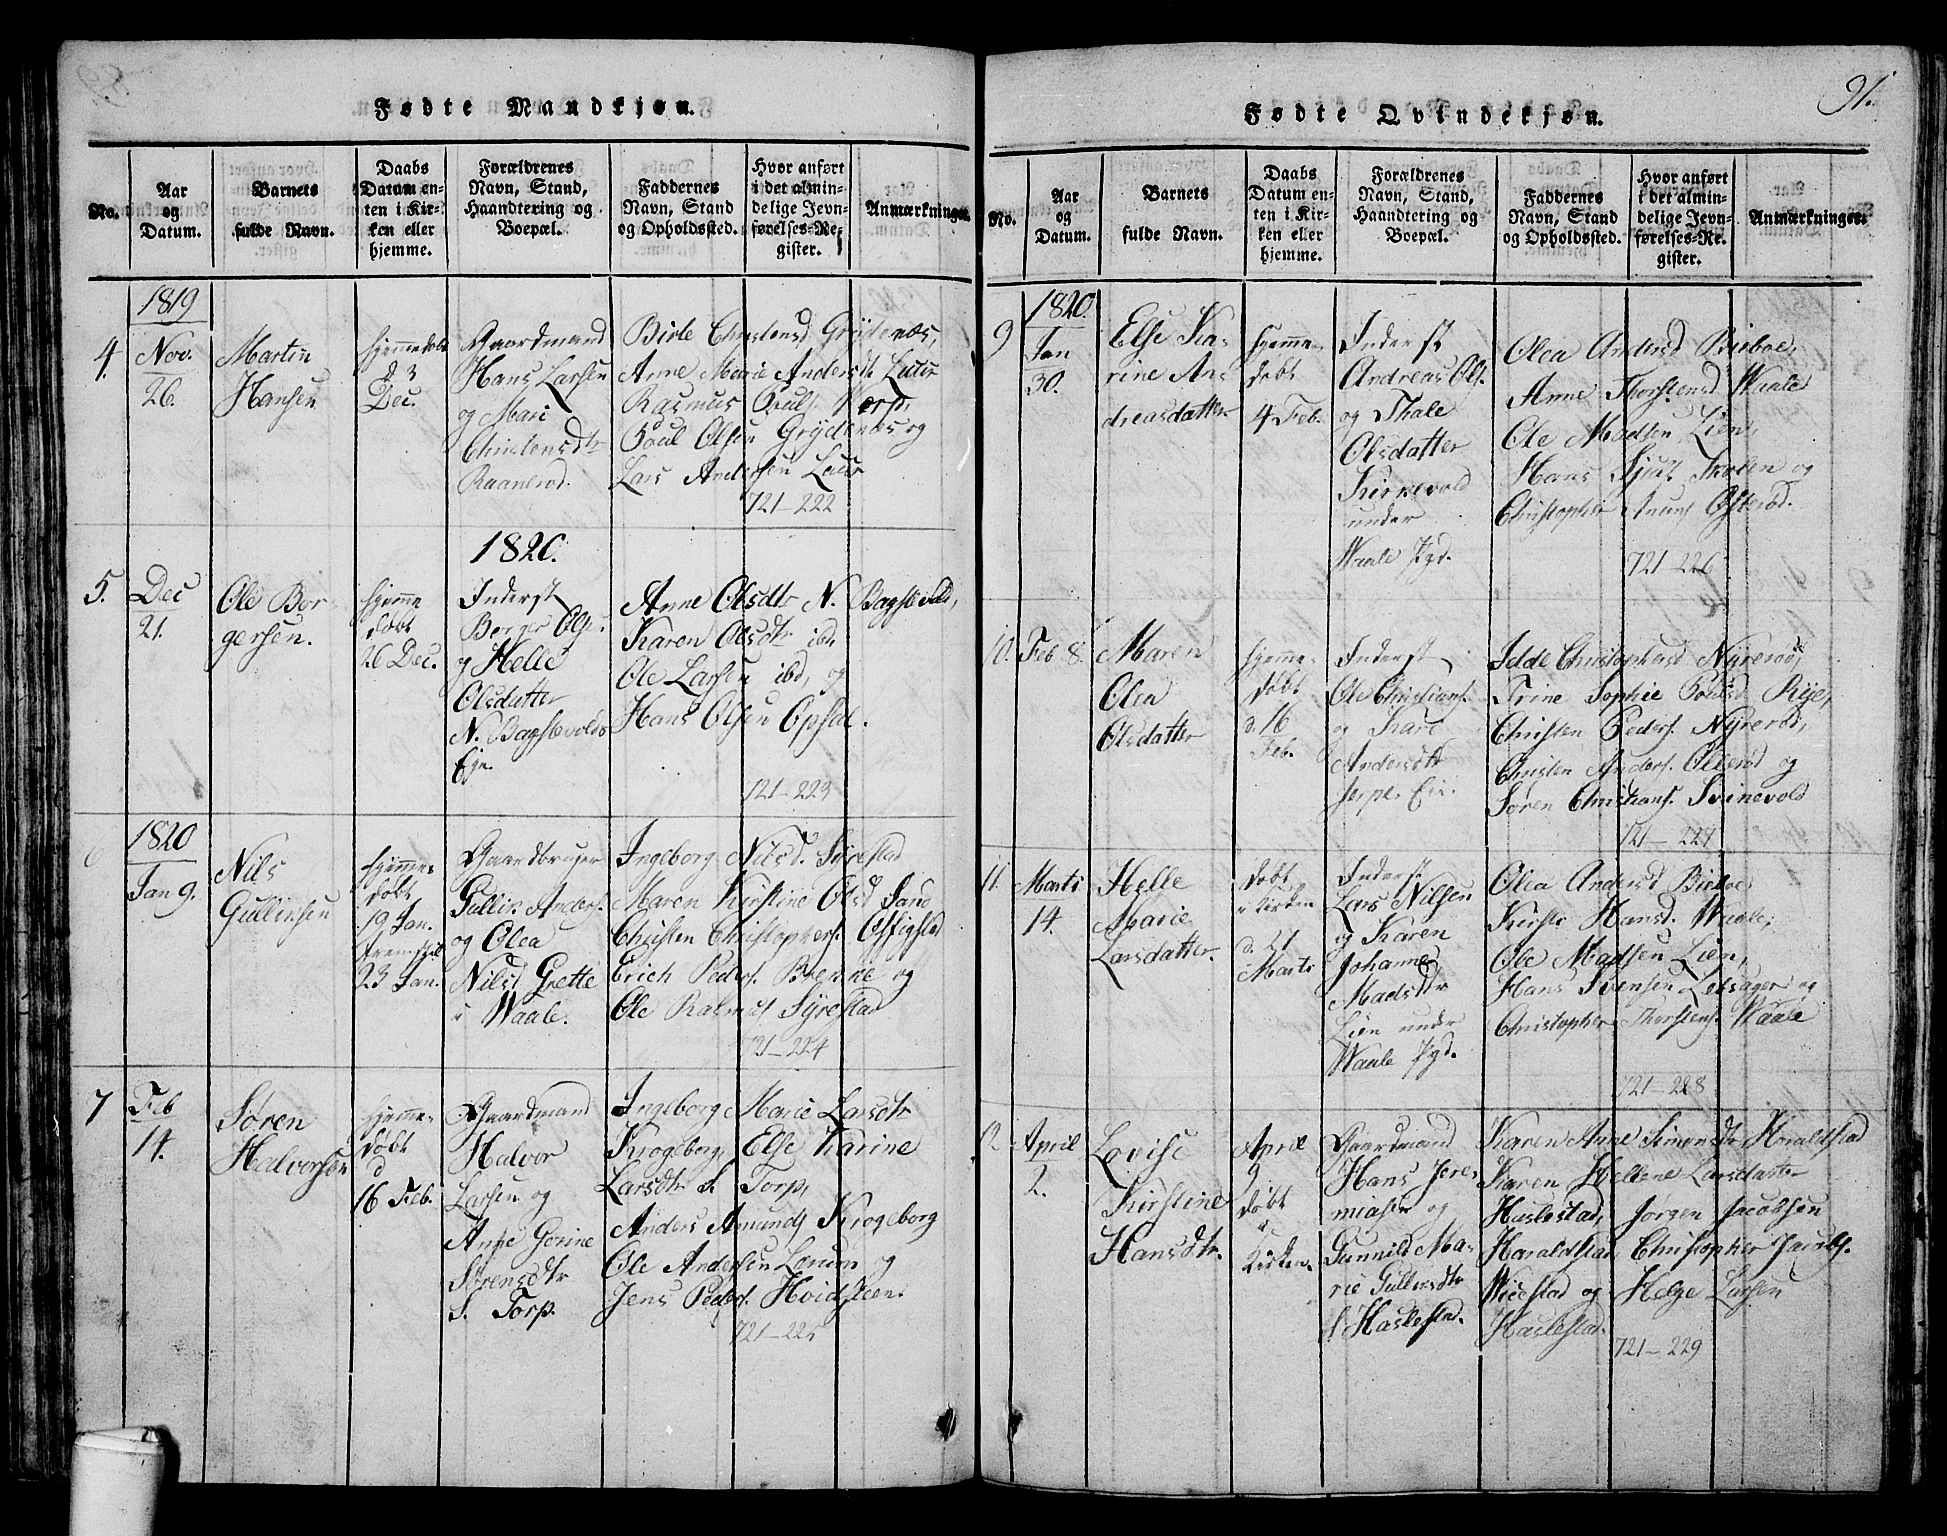 91.
Fødte Mandkjøn.
No.
Aar
og
Datum.
Barnets
fulde Navn.
Daabs
Datum en-
ten i Kir-
ken eller
hjemme.
Forældrenes
Navn, Stand,
Haandtering og
Boepæl.
Faddernes
Navn, Stand
og Opholdssted.
Hvor anført
i det almin-
delige Jevn-
førelses-Re-
gister.
Anmærkninger.
4.
1819
Nov.
26.
Martin
Hansen
hjemmedøbt
d 3
Dec.
Gaardmand
Hans Larsen
og Mari
Christensdtr
Raanerød.
Birte Christensd Grydenæs,
Anne Marie Andersdt
Rasmus
Poul Olsen Grydenæs og
Lars Andersen
721-222
1820.
5.
Dec
21.
Ole Bor-
gersen.
hjemme
døbt
26 Dec.
Inderst
Borger Olse.
og Helle
Olsdatter
N. Bagstevolds
Eje.
Anne Olsdtr N. Bagstevold,
Karen Olsdtr ibd
Ole Larsen ibd, og
Hans Olsen Opsal.
721-223
6
1820
Jan 9.
Nils
Gulliksen
hjemme-
døbt
19 Jan.
fremstil
23 Jan.
Gaardbruger
Gullik Anders.
og Olea
Nilsd Grette
i Waale.
Ingeborg Nilsd. Syrestad
Maren Kirstine Olsd Sand
Christen Christophers.
Erich Peders. Brenne og
Ole Rasmus Syrestad
721-224
7
Feb
14.
Søren
Halvorsen
hjemme-
døbt
d
16 Feb.
Gaardmand
Halvor
Larsen og
Anne Gorine
Sørensdtr
S. Torp.
Ingeborg Marie Larsdtr
Krogeborg, Else Karine
Larsdtr S. Torp,
Anders Amunds Krogeborg
Ole Andersen Lorum og
Jens Peders. Hvidsteen.
721-225
Fødte Qvindekjøn.
No.
Aar
og
Datum.
Barnets
fulde Navn.
Daabs
Datum en-
ten i Kir-
ken eller
hjemme.
Forældrenes
Navn, Stand,
Haandtering og
Boepæl.
Faddernes
Navn, Stand
og Opholdssted.
Hvor anført
i det almin-
delige Jevn-
førelses-Re-
gister.
Anmærkninger.
9
1820
Jan
30.
Else Ka-
rine An-
dreasdatter
hjemme-
døbt
4 Feb.
Inderst
Andreas Ols.
og Thale
Olsdatter
Kirkevold
under
Waale Pgd.
Olea Andersd Bieboe,
Anne Thorstensd Waale
Ole Madsen Lien,
Hans og
Christopher
721-226
10.
Feb 8.
Maren
Olea
Olsdatter
hjemme-
døbt
d. 16
Feb.
Inderst
Ole Christians.
og Kari
Andersdtr
Jerpe. Eie.
Idde Christophersd Nyrerød,
Trine Sophie Poulsd Reje,
Christen Peders. Nyrerød,
Christen Anders. Ollerød og
Søren Christians. Svinevold
721-227
11.
Marti
14.
Helle
Marie
Larsdatter.
døbt
i Kirken
d. 27
Marti
Inderst
Lars Nilsen
og Karen
Johanne
Madsdtr
Lien under
Waale Pgd.
Olea Andersd Bieboe
Kirsti Hansd. Waale,
Ole Madsen Lien,
Hans Svensen og
Christopher Thorstens. Waale
721-228
12.
April
2.
Lovise
Kirstine
Hansdtr.
April
9
døbt
i
Kirken.
Gaardmand
Hans Jere-
miasen og
Gunnild Ma-
rie Gulliksdtr
Haslestad.
Karen Anne Simonsdtr Haraldstad
Karen Hellene Larsdatter
Haslestad, Jørgen Jacobsen
Haraldstad Christopher Jacobs.
Wiestad og Helge Larsen
Haslestad.
721-229